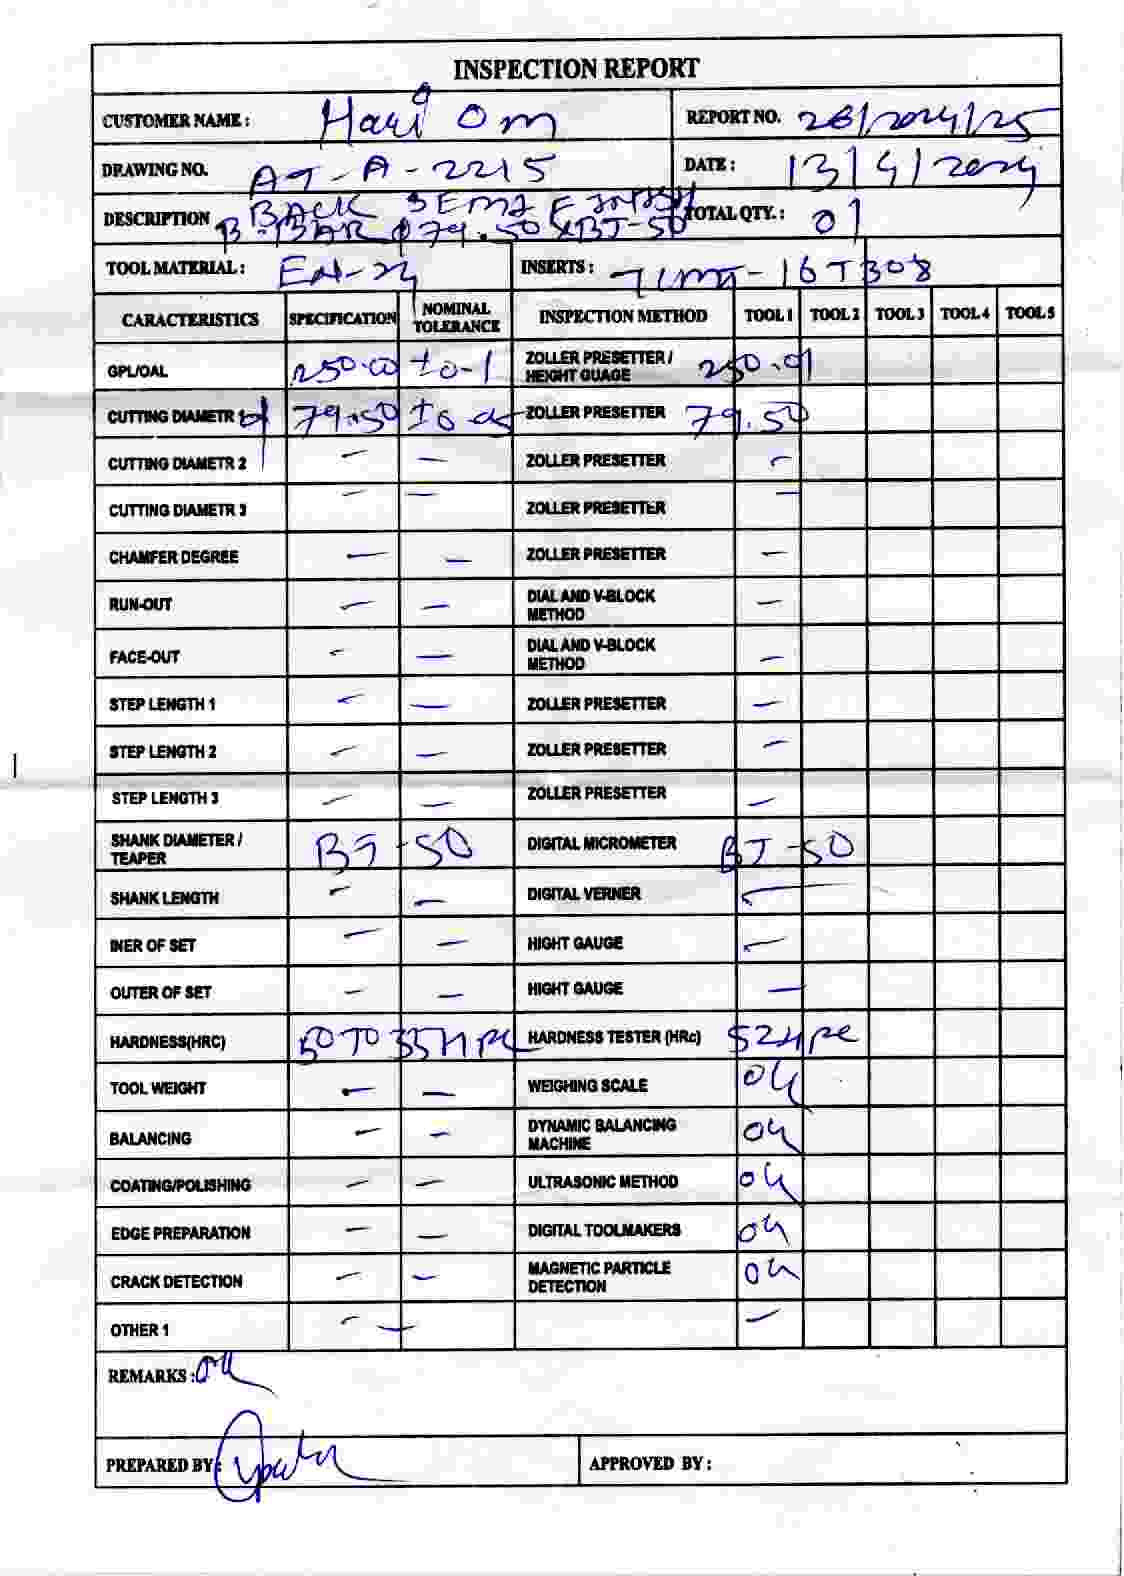 INSPECTION REPORT
CUSTOMER NAME : Hari Om REPORT NO. 26/2024/25
DRAWING NO. AT-A-2215 DATE : 13/4/2024
DESCRIPTION BACK SEMI FINISH TOTAL QTY. : 01
B-BAR φ79.50XBT-50
TOOL MATERIAL : EN-24 INSERTS : TCMT-16T308
CARACTERISTICS SPECIFICATION NOMINAL TOLERANCE INSPECTION METHOD TOOL 1 TOOL 2 TOOL 3 TOOL 4 TOOL 5
GPL/OAL 250.00 ±0-1 ZOLLER PRESETTER / HEIGHT GUAGE 250.01
CUTTING DIAMETR 1 79.50 ZOLLER PRESETTER 79.50
CUTTING DIAMETR 2 — — ZOLLER PRESETTER —
CUTTING DIAMETR 3 — — ZOLLER PRESETTER —
CHAMFER DEGREE — — ZOLLER PRESETTER —
RUN-OUT — — DIAL AND V-BLOCK METHOD —
FACE-OUT — — DIAL AND V-BLOCK METHOD —
STEP LENGTH 1 — — ZOLLER PRESETTER —
STEP LENGTH 2 — — ZOLLER PRESETTER —
STEP LENGTH 3 — — ZOLLER PRESETTER —
SHANK DIAMETER / TEAPER BT-50 DIGITAL MICROMETER BT-50
SHANK LENGTH — — DIGITAL VERNER —
INER OF SET — — HIGHT GAUGE —
OUTER OF SET — — HIGHT GAUGE —
HARDNESS(HRC) 50 TO 55 HRC HARDNESS TESTER (HRc) 52 HRC
TOOL WEIGHT — — WEIGHING SCALE OK
BALANCING — — DYNAMIC BALANCING MACHINE OK
COATING/POLISHING — — ULTRASONIC METHOD OK
EDGE PREPARATION — — DIGITAL TOOLMAKERS OK
CRACK DETECTION — — MAGNETIC PARTICLE DETECTION OK
OTHER 1 — — —
REMARKS : OK
PREPARED BY : APPROVED BY :